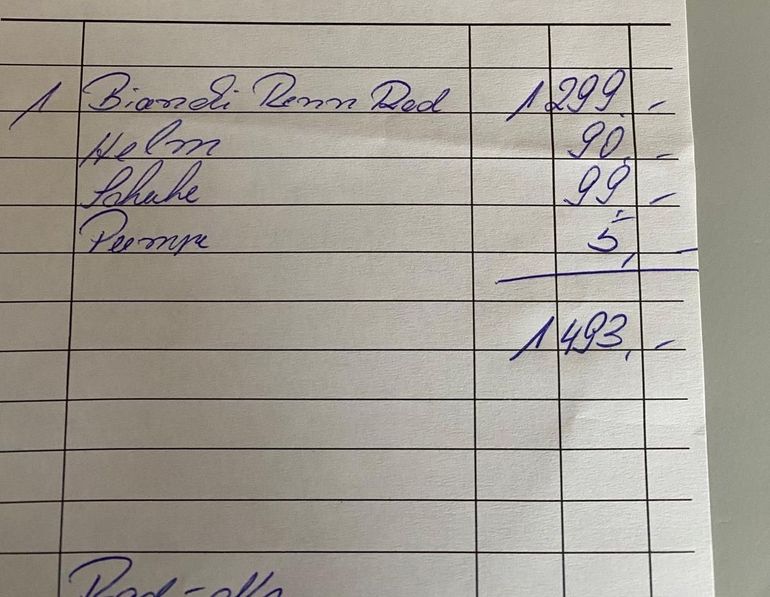 1 Bianchi Renn Rad 1299,-
Helm 90,-
Schuhe 99,-
Pumpe 5,-
1493,-
Rad-